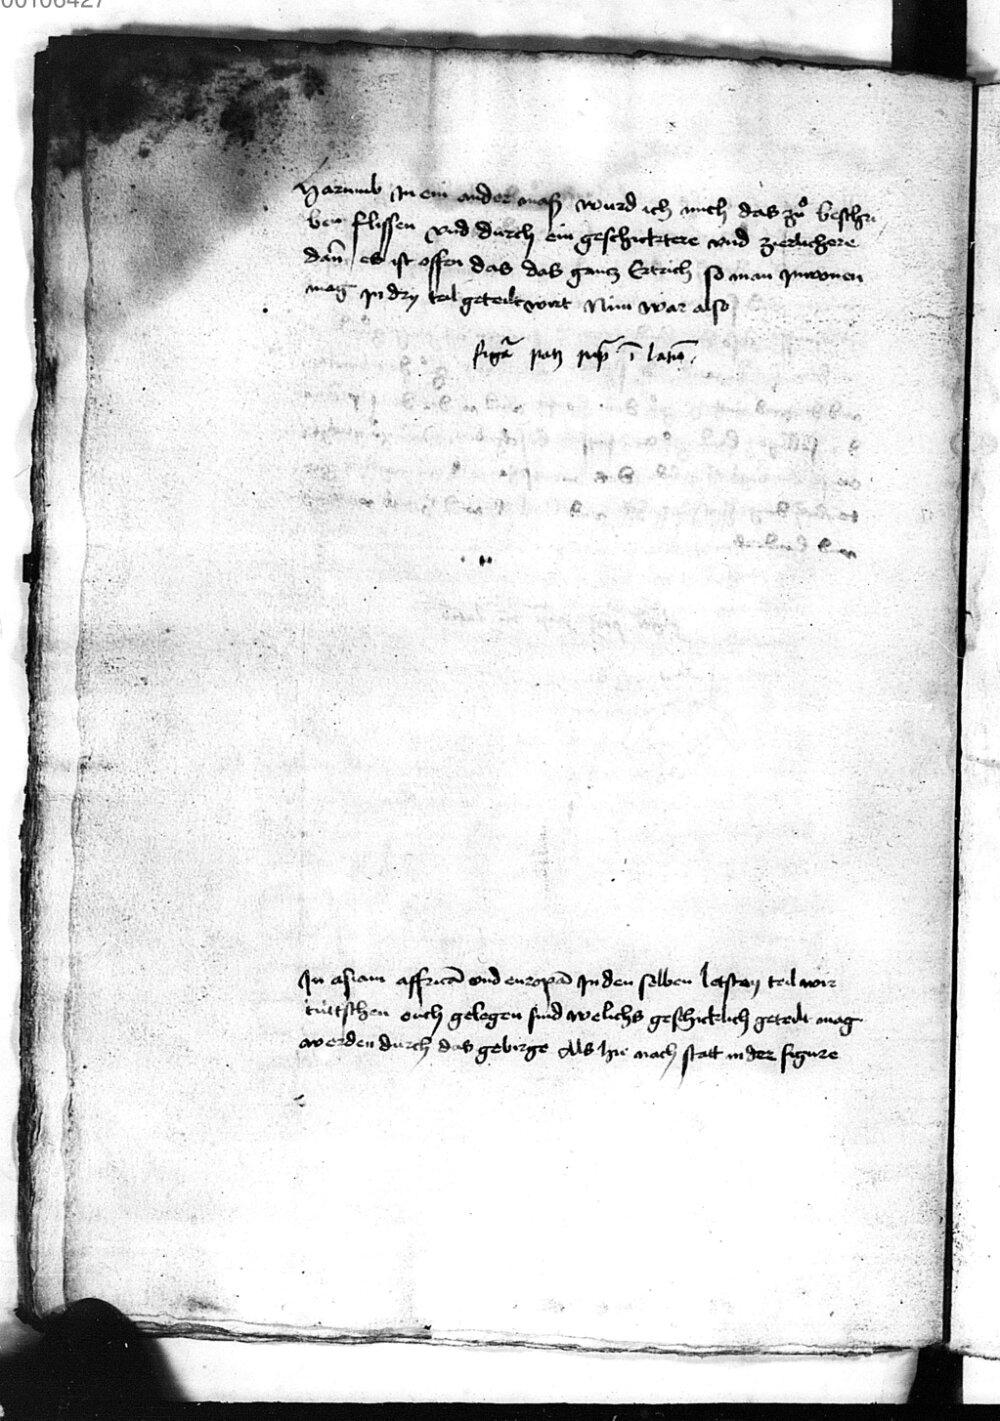 00106427
Harumb In ein ander maß wurd ich mich das zů beschri
ben flissen vnd durch ein geschicktere vnd zierlichere
dañ es ist offen das das gantz Ertrich so man Inwonen
mag In dry teil geteilt wirt Nim war also
figā patz in latīo
In asiam affricā vnd europā In den selben letsten teil wir
tüttschen ouch gelegen sind welichs geschicklich geteilt mag
werden durch das gebirge Als hie nach statt in der figure